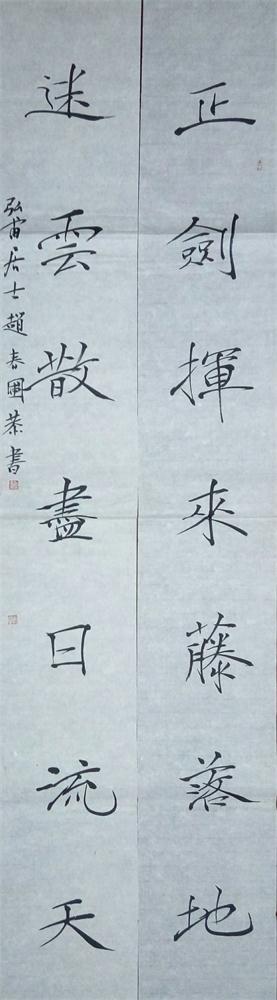 正劍揮來藤落地
迷雲散盡日流天
弘宙居士趙春國恭書